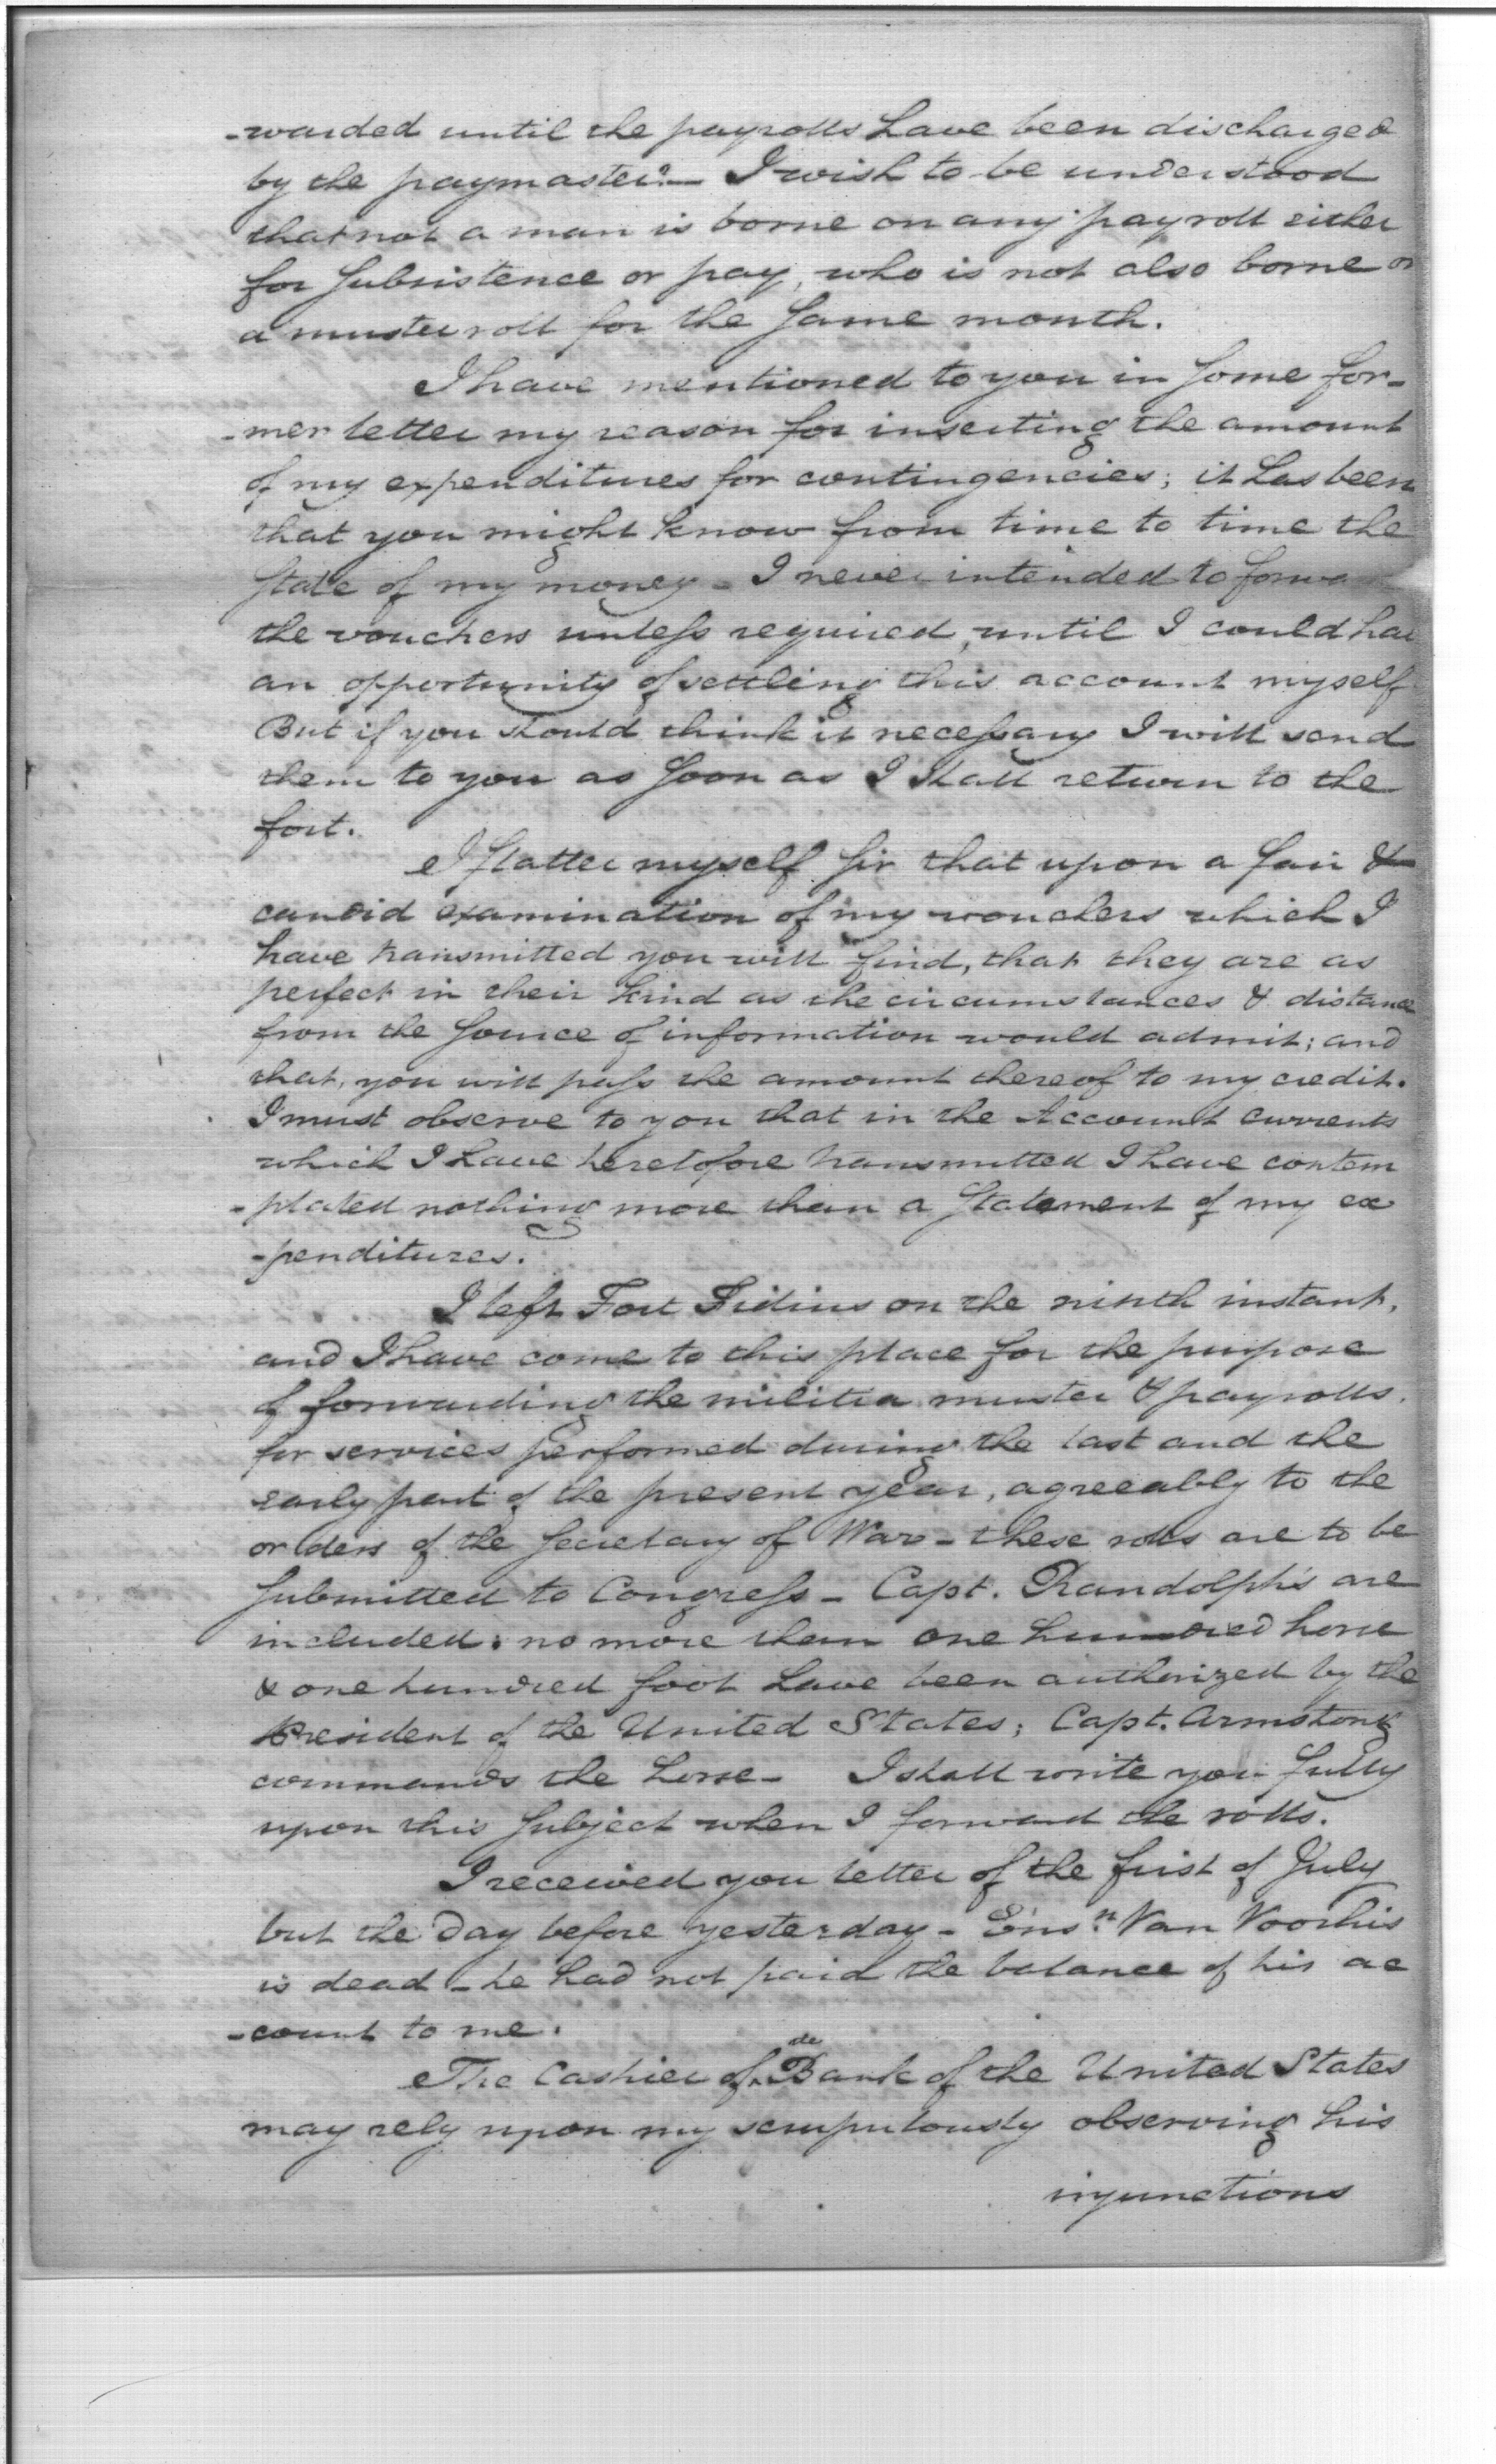 -warded until the payrolls have been discharged
by the paymaster.— I wish to be understood
that not a man is borne on any payroll either
for subsistence or pay, who is not also borne on
a muster roll for the same month.
I have mentioned to you in some for-
-mer letter my reason for inserting the amount
of my expenditures for contingencies; it has been
that you might know from time to time the
state of my money - I never intended to forwa
the vouchers unless required, until I could hav
an opportunity of settling this account myself
But if you should think it necessary I will send
them to you as soon as I shall return to the
fort.
I flatter myself sir that upon a fair &
candid examination of my vouchers which I
have transmitted you will find, that they are as
perfect in their kind as the circumstances & distance
from the source of information would admit; and
that, you will pass the amount thereof to my credit.
I must observe to you that in the Account currents
which I have heretofore transmitted I have contem
-plated nothing more than a statement of my ex
-penditures.
I left Fort Fidius on the ninth instant,
and I have come to this place for the purpose
of forwarding the militia muster & payrolls.
for services performed during the last and the
early part of the present year, agreeably to the
orders of the secretary of War - these rolls are to be
submitted to Congress - Capt. Randolph's are
included: no more than one hundred horse
& one hundred foot have been authorized by the
President of the United States; Capt. Armstong
commands the horse - I shall write you fully
upon this subject when I forward the rolls.
I received you letter of the first of July
but the day before yesterday - Ensn. Van Voorhis
is dead - he had not paid the balance of his ac
-count to me.
The Cashier of the Bank of the United States
may rely upon my scrupulously observing his
injunctions